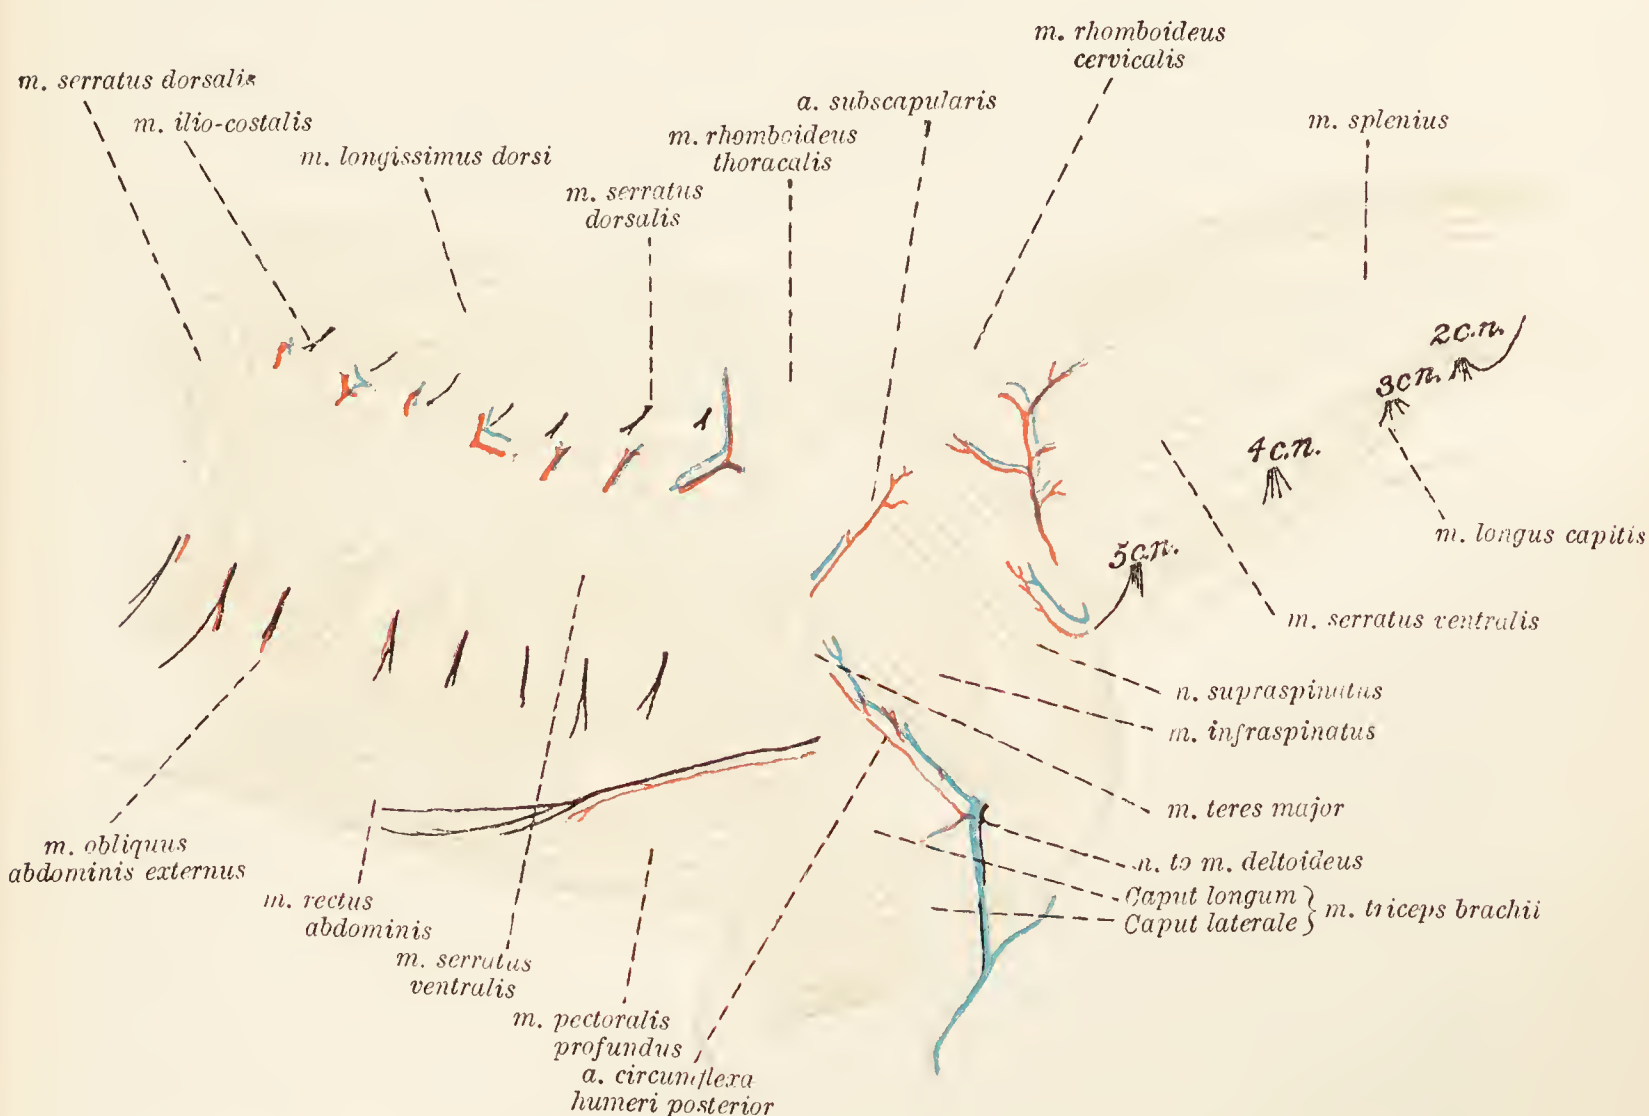 m. rhomboideus
cervicalis
m. serratus dorsalis
m. ilio-costalis
m. longissimus dorsi
m. serratus
dorsalis
m. rhomboideus
thoracalis
a. subscapularis
m. splenius
2c.n.
3c.n.
4c.n.
5c.n.
m. longus capitis
m. serratus ventralis
n. supraspinatus
m. infraspinatus
m. teres major
n. to m. deltoideus
Caput longum
Caput laterale
m. triceps brachii
m. obliquus
abdominis externus
m. rectus
abdominis
m. serratus
ventralis
m. pectoralis
profundus
a. circumflexa
humeri posterior